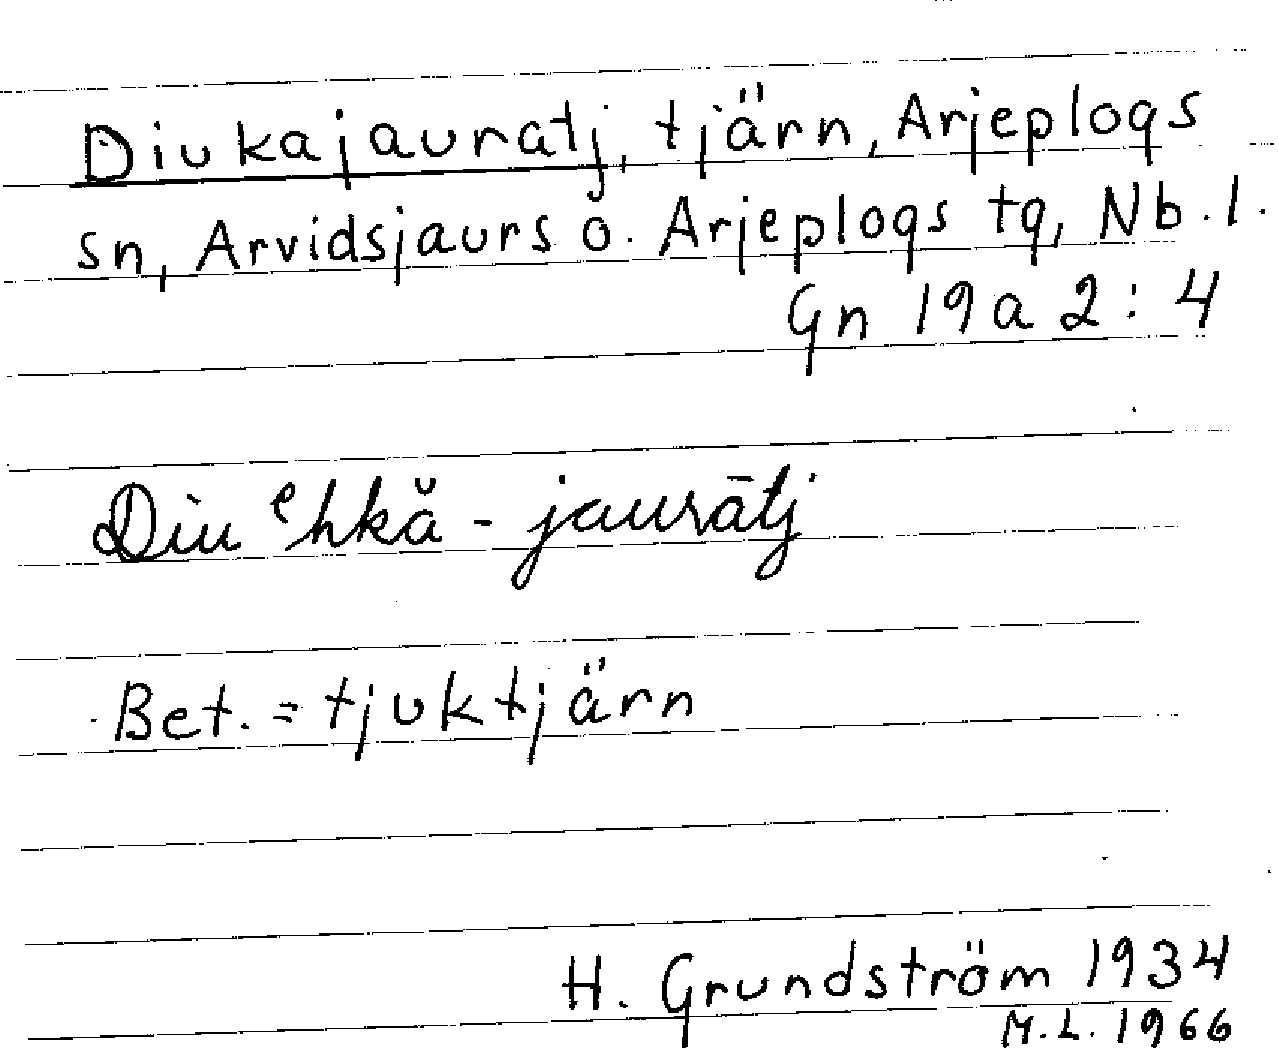 Diukajauratj, tjärn, Arjeplogs
sn, Arvidsjaurs o. Arjeplogs tg, Nb. l.
Gn 19a 2:4
Diuͤhkă-jaurātj
Bet. = tjuktjärn
H. Grundström 1934
M.L. 1966